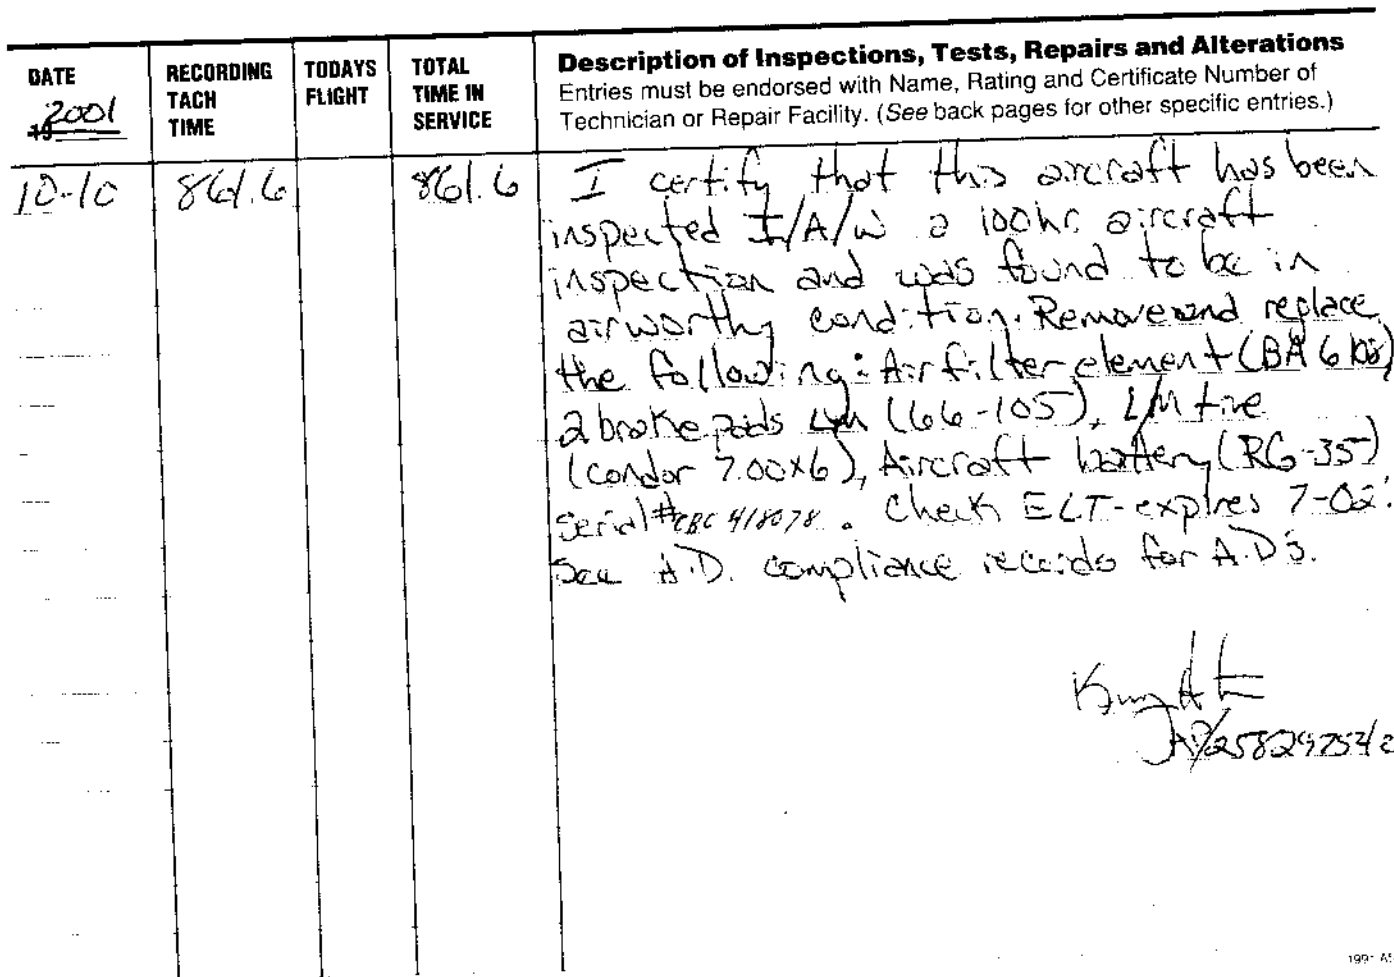 DATE
2001
RECORDING
TACH
TIME
TODAYS
FLIGHT
TOTAL
TIME IN
SERVICE
Description of Inspections, Tests, Repairs and Alterations
Entries must be endorsed with Name, Rating and Certificate Number of
Technician or Repair Facility. (See back pages for other specific entries.)
10-10 861.6 861.6
I certify that this aircraft has been
inspected I/A/W a 100hr. aircraft
inspection and was found to be in
airworthy condition. Remove and replace
the following: Air filter element (BA 6108)
2 brake pads LM (66-105), L/M tire
(condor 7.00x6), Aircraft battery (RG-35)
serial# CBC 418078. Check ELT-expires 7-02.
See A.D. compliance records for A.D's.